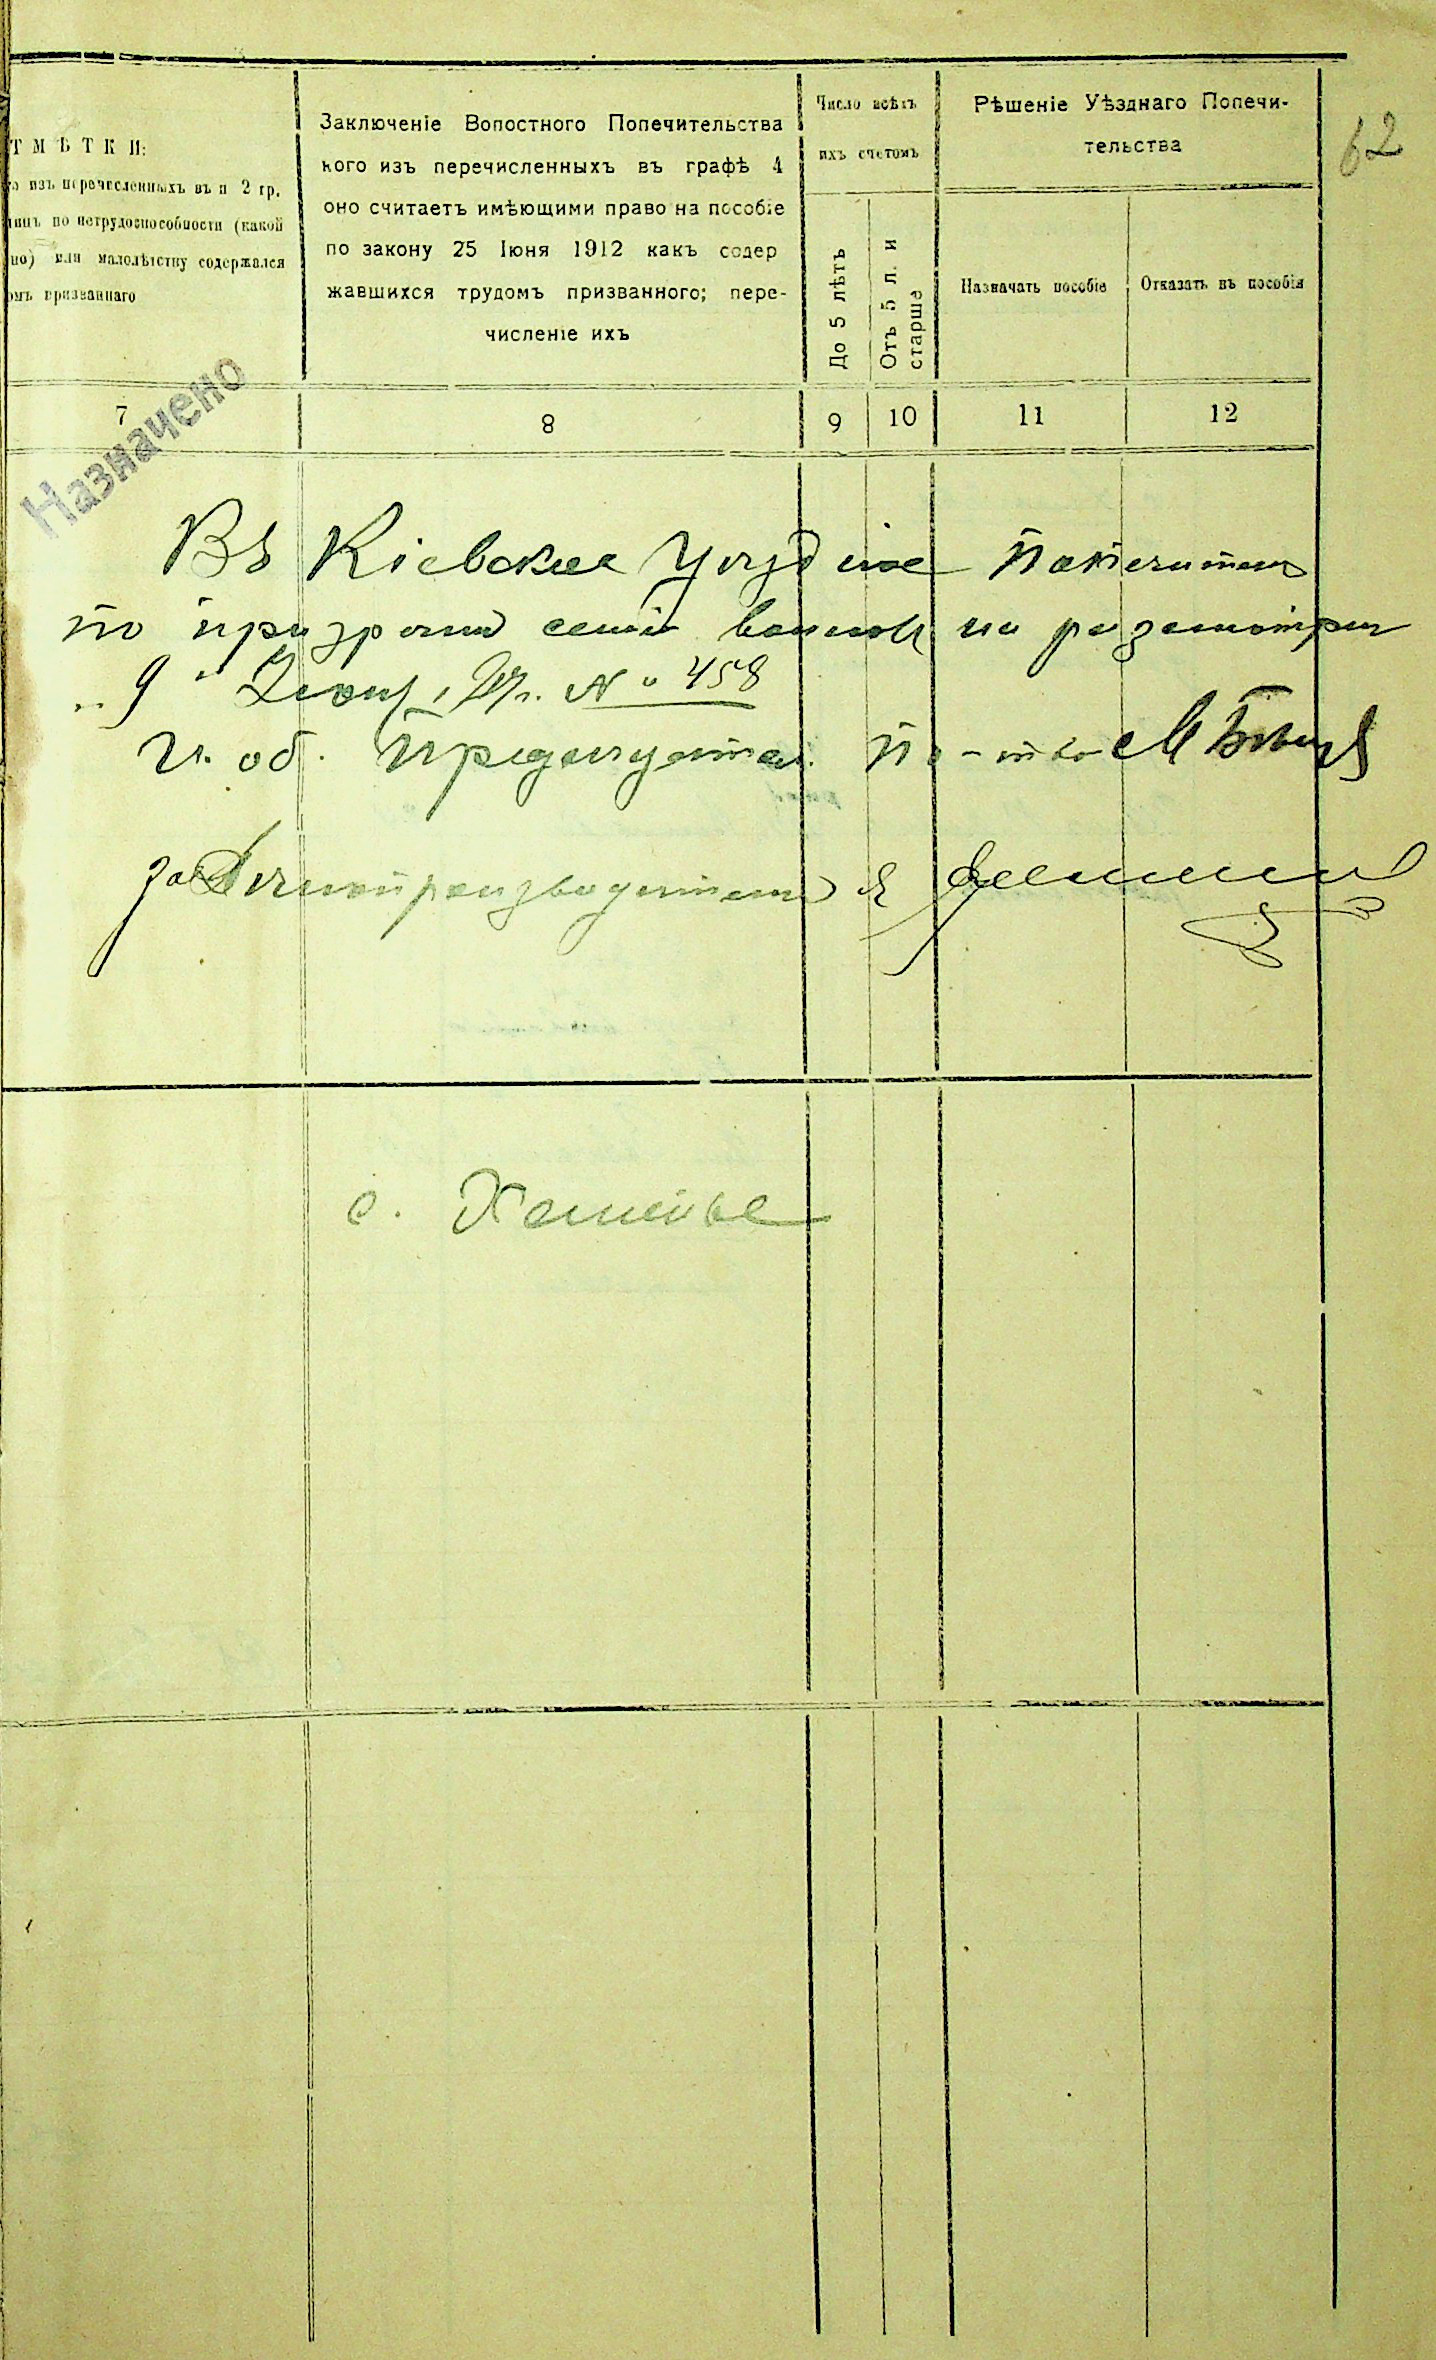 62
ТМѢТКИ:
изъ перечисленныхъ въ п 2 гр.
по нетрудоспособности (какой
или малолѣтству содержался
призваннаго
Заключеніе Волостного Попечительства
кого изъ перечисленныхъ въ графѣ 4
оно считаетъ имѣющими право на пособіе
по закону 25 Іюня 1912 какъ содер
жавшихся трудомъ призванного; пере-
численіе ихъ
Число всѣхъ
ихъ счетомъ
До 5 лѣтъ
Отъ 5 л. и
старше
Рѣшеніе Уѣзднаго Попечи-
тельства
Назначать пособіе
Отказать въ пособія
7
8
9
10
11
12
Назначено
Въ Кіевское Уѣздное
по призрѣнію семей на
„9" № 458
И. об. Предсѣдателя По-тва
за Дѣлопроизводителя
с.